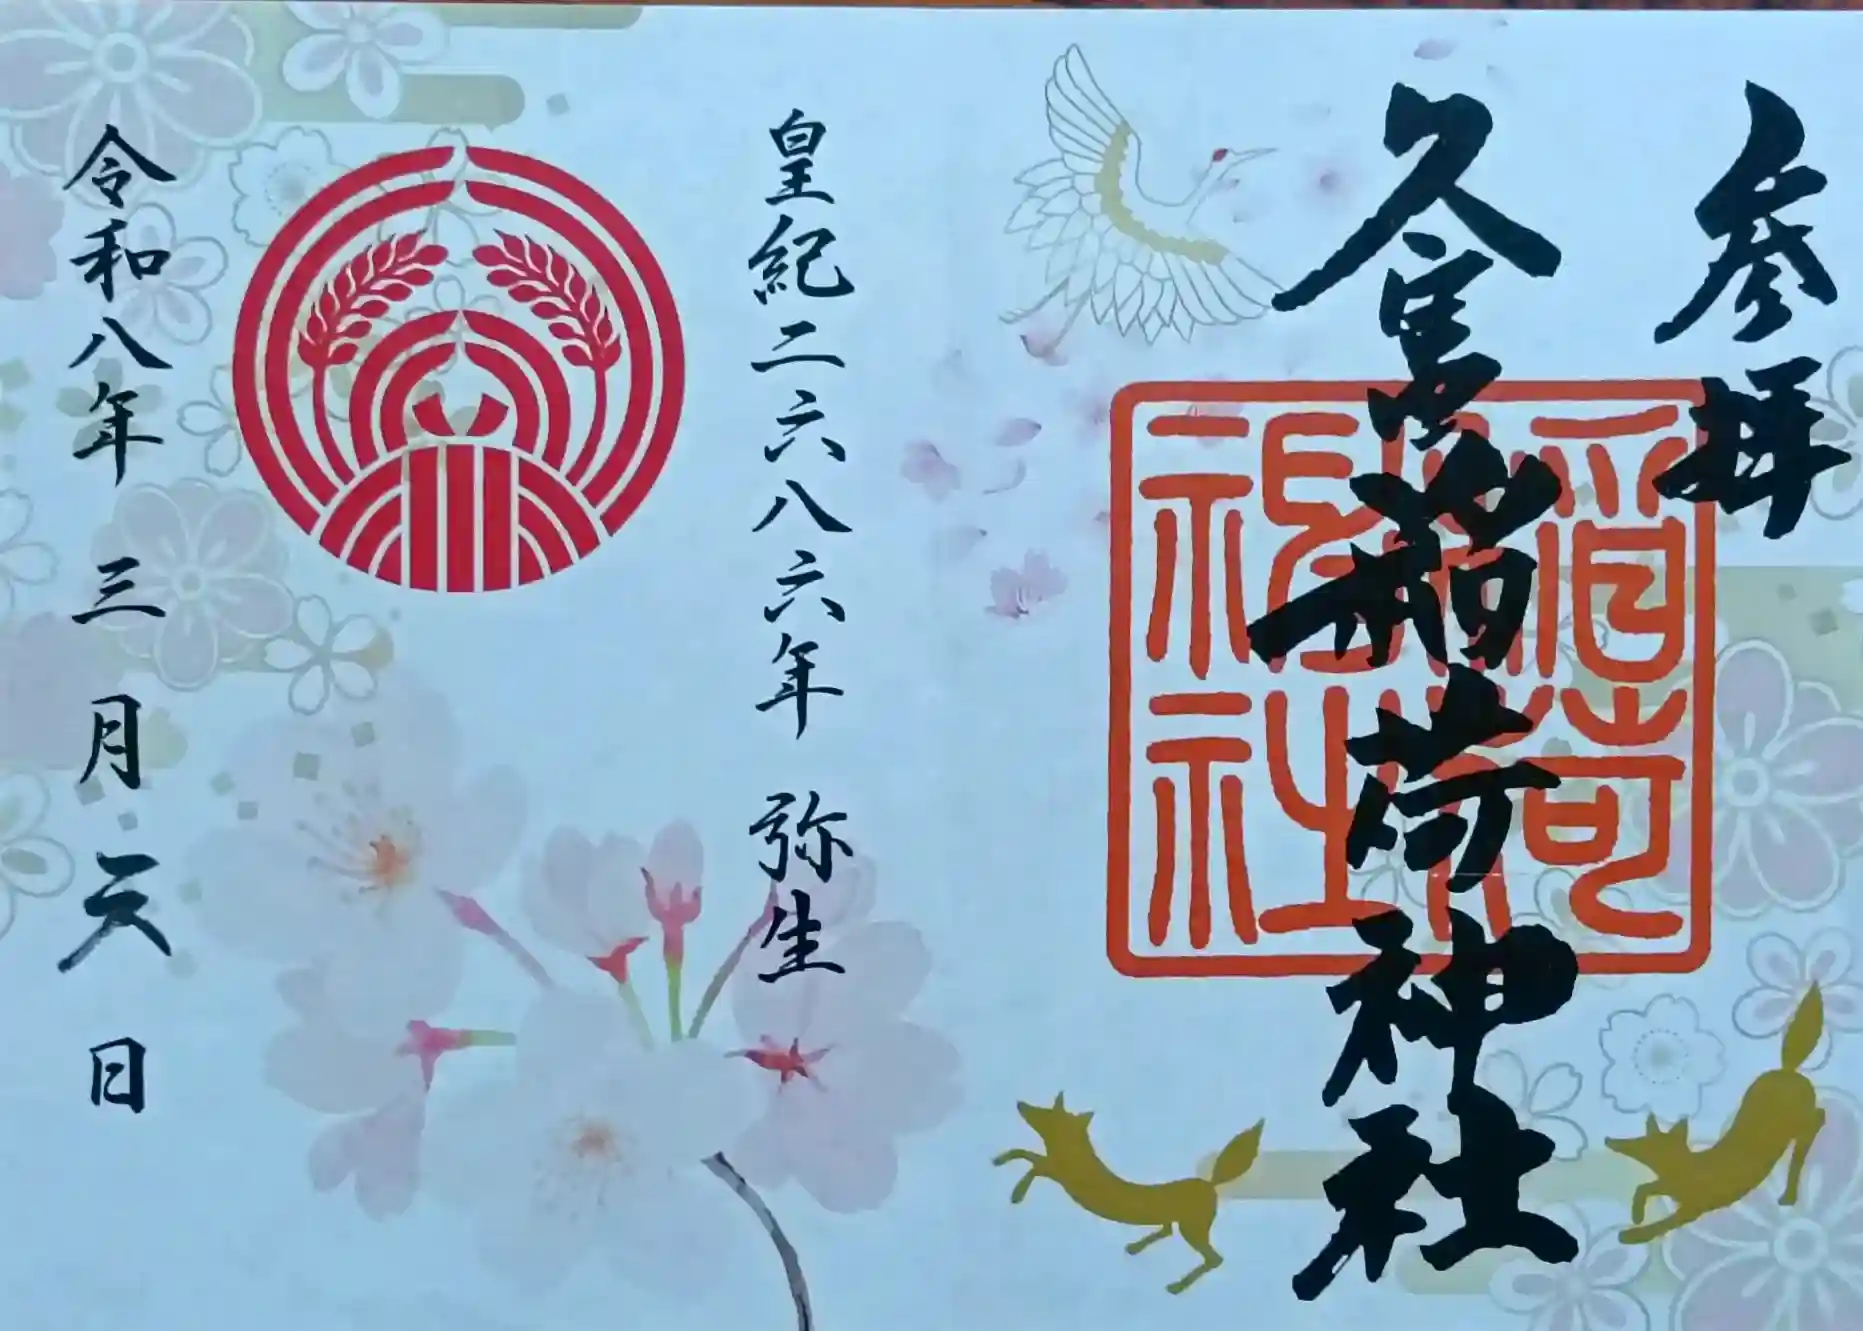 参拝
久富稲荷神社
稲荷
神社
皇紀二六八六年 弥生
令和八年 三月 日